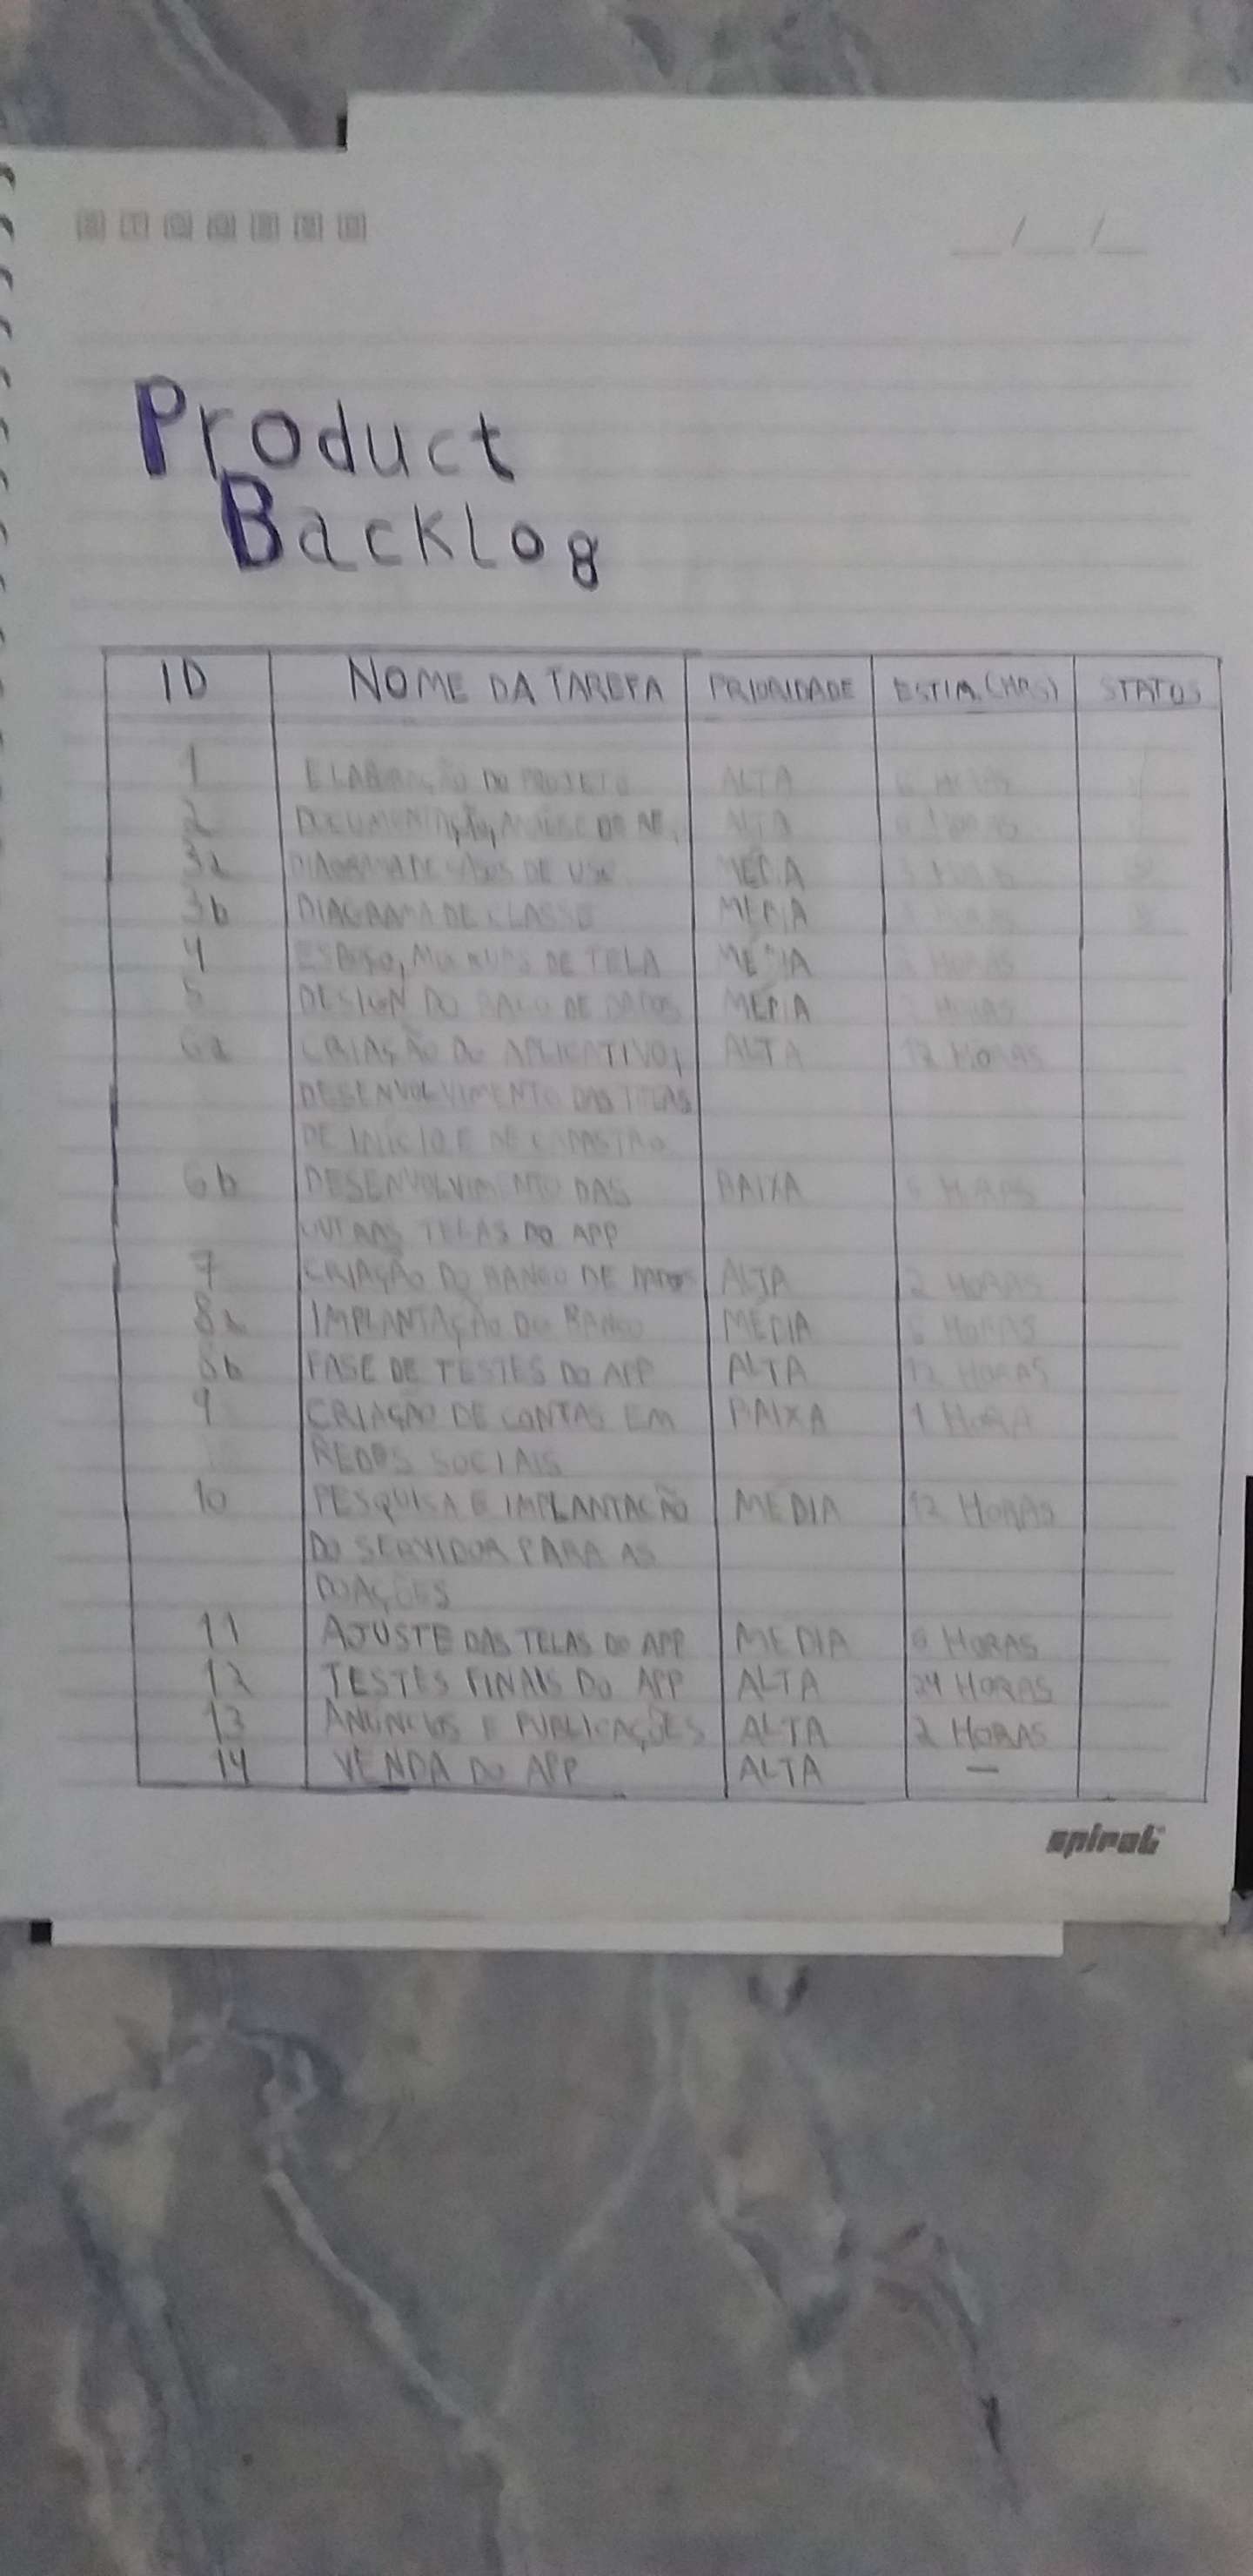 Product
Backlog
ID NOME DA TAREFA PRIORIDADE ESTIM.(HRS) STATUS
1 ELABORAÇÃO DO PROJETO ALTA 6 HORAS
2 DOCUMENTAÇÃO, ALTA HORAS
3a DIAGRAMA DE CASOS DE USO MÉDIA
3b DIAGRAMA DE CLASSE MÉDIA
4 DE TELA MÉDIA HORAS
5 DESIGN DO BANCO DE DADOS MÉDIA HORAS
6a CRIAÇÃO DO APLICATIVO, ALTA 12 HORAS
DESENVOLVIMENTO DAS TELAS
DE INÍCIO E DE CADASTRO
6b DESENVOLVIMENTO DAS BAIXA HORAS
OUTRAS TELAS DO APP
7 CRIAÇÃO DO BANCO DE DADOS ALTA 2 HORAS
8a IMPLANTAÇÃO DO BANCO MÉDIA 6 HORAS
8b FASE DE TESTES DO APP ALTA 12 HORAS
9 CRIAÇÃO DE CONTAS EM BAIXA 1 HORA
REDES SOCIAIS
10 PESQUISA E IMPLANTAÇÃO MÉDIA 12 HORAS
DO SERVIDOR PARA AS
DOAÇÕES
11 AJUSTE DAS TELAS DO APP MÉDIA 6 HORAS
12 TESTES FINAIS DO APP ALTA 24 HORAS
13 ANÚNCIOS E PUBLICAÇÕES ALTA 2 HORAS
14 VENDA DO APP ALTA —
spiral